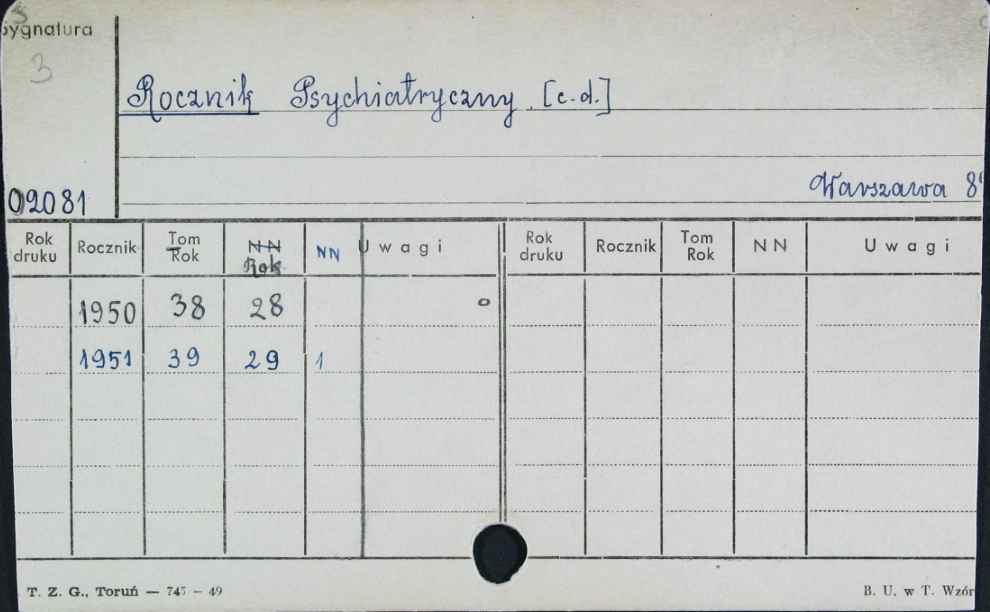 Sygnatura
3
Rocznik Psychiatryczny [c.d.]
02081
Warszawa 8
Rok druku Rocznik Tom Rok NN Rok NN Uwagi Rok druku Rocznik Tom Rok NN Uwagi
1950 38 28
1951 39 29 1
T. Z. G., Toruń — 745 — 49 B. U. w T. Wzór